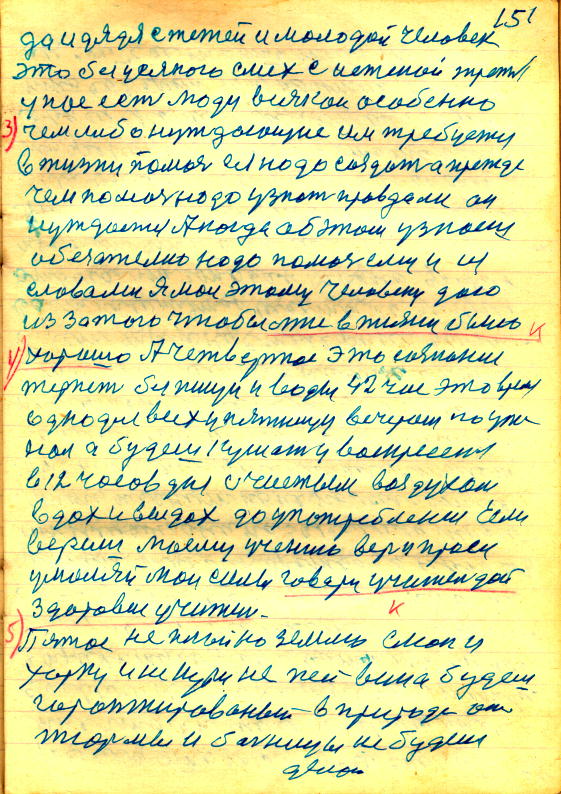 151
да и дядя с тетей и молодой человек
это бы у
у нас есть люди всякои особенно
3) чем либо нуждающие им требует
в жизни помоч ей надо создат а прежде
чем помоч надо узнат правда ли он
нуждается А когда об этом узнаеш
обезателно надо помоч ему и
словами я мои этому человеку даю
из за того чтобы мне в жизни было к
4) хорошо А четвертое это сознание
терпет без пищи и воды 42 час это время
одно для всех у пятницу вечером
а будеш кушат у воскресеня
в 12 часов дня с чистым воздухом
вдох и выдох до употребления Если
вериш моему учению вер и проси
умоляй мои силы говори учител дай
здоровие учител.
к
5) Пятое не плюй на землю смол и
харку и не кури не пей вина будеш
гарантированый в природе от
тюрмы и болницы не будеш